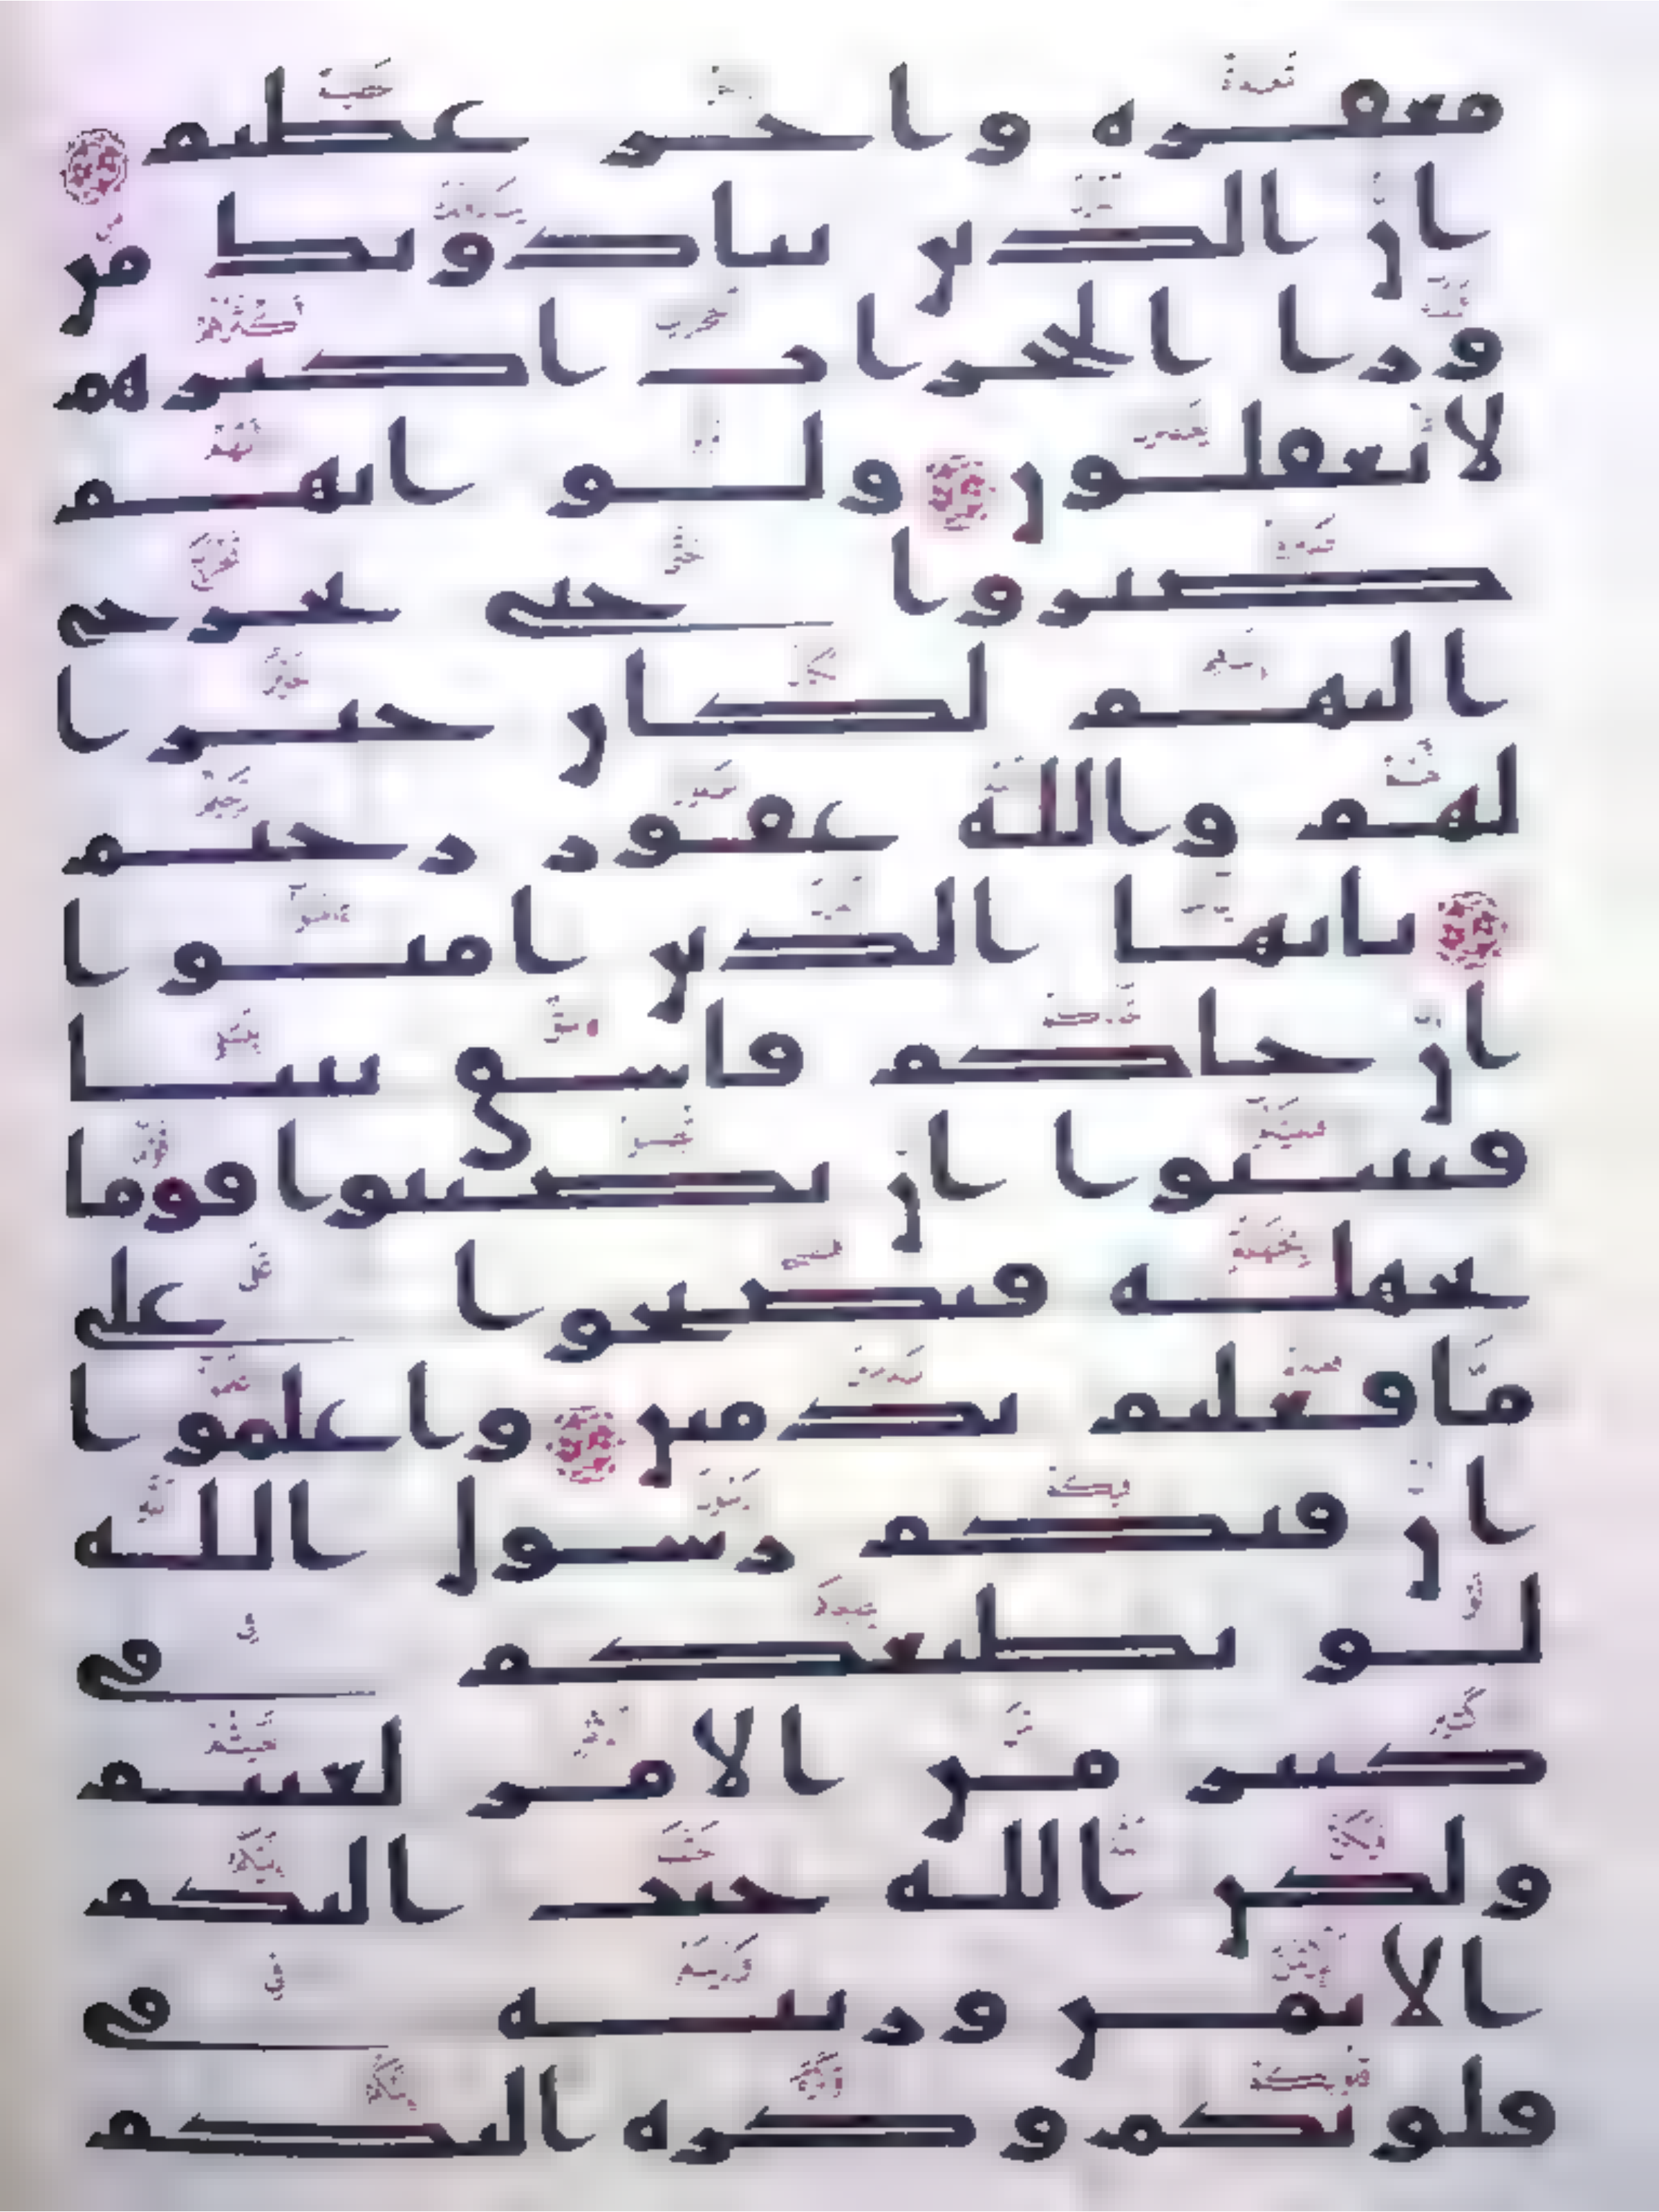 مغفرة واجر عظيم
ان الذين ينادونك من
ورا الحجرات اكثرهم
لا يعقلون ولو انهم
صبروا حتى تخرج
اليهم لكان خيرا
لهم والله غفور رحيم
يايها الذين امنوا
ان جاكم فاسق بنبا
فتبينوا ان تصيبوا قوما
بجهلة فتصبحوا على
ما فعلتم ندمين واعلموا
ان فيكم رسول الله
لو يطيعكم في
كثير من الامر لعنتم
ولكن الله حبب اليكم
الايمن وزينه في
قلوبكم وكره اليكم